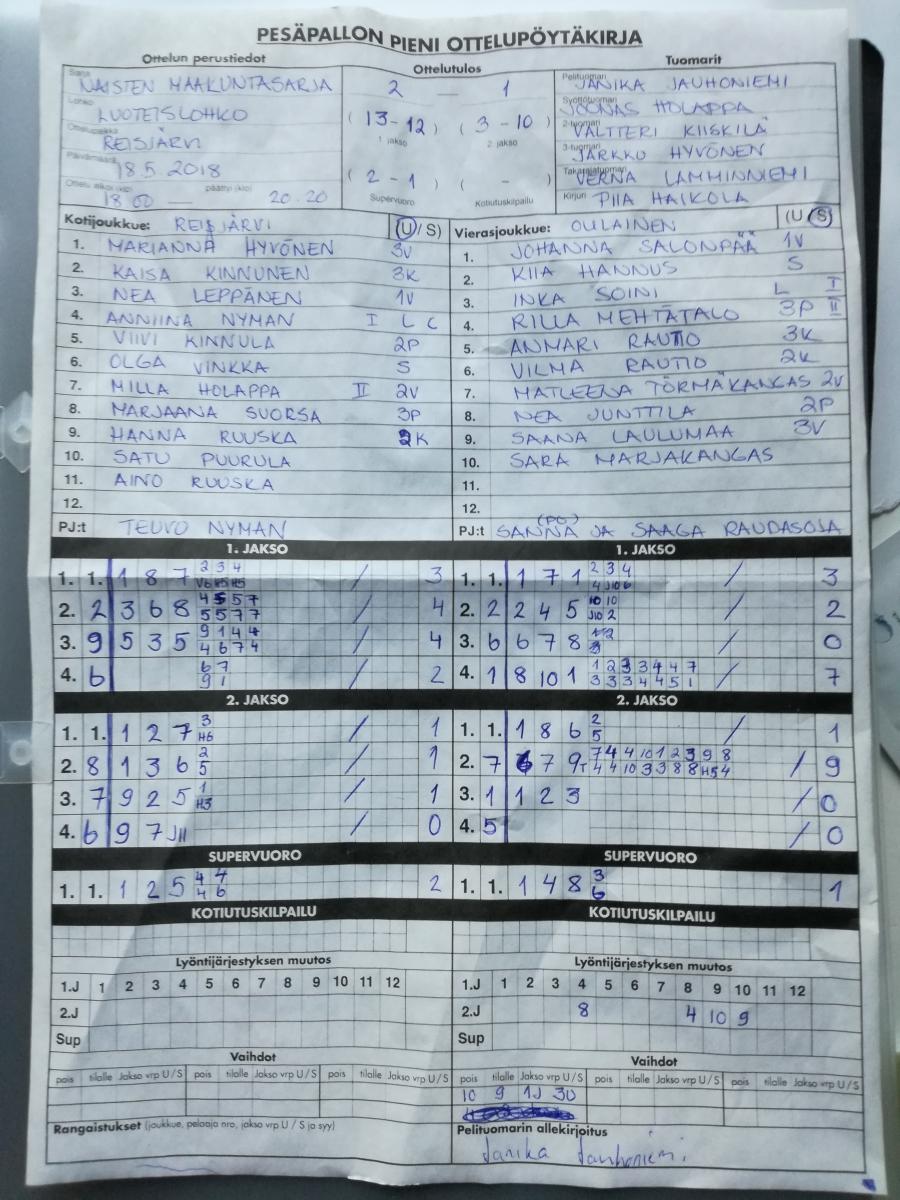 PESÄPALLON PIENI OTTELUPÖYTÄKIRJA
Ottelun perustiedot
Sarja NAISTEN MAAKUNTASARJA
Lohko LUOTEISLOHKO
Ottelupaikka REISJÄRVI
Päivämäärä 18.5.2018
Ottelu alkoi (klo) 18.00 — päättyi (klo) 20.20
Ottelutulos
2 — 1
(13-12) (3-10)
1. jakso 2. jakso
(2-1) ( - )
Supervuoro Kotiutuskilpailu
Tuomarit
Pelituomari JANIKA JAUHONIEMI
Syöttötuomari JOONAS HOLAPPA
2-tuomari VALTTERI KIISKILÄ
3-tuomari JARKKO HYVÖNEN
Takarajatuomari VERNA LAMMINNIEMI
Kirjuri PIIA HAIKOLA
Kotijoukkue: REISJÄRVI (U/S)
1. MARIANNA HYVÖNEN 3V
2. KAISA KINNUNEN 3K
3. NEA LEPPÄNEN 1V
4. ANNIINA NYMAN I L C
5. VIIVI KINNULA 2P
6. OLGA VINKKA S
7. MILLA HOLAPPA II 2V
8. MARJAANA SUORSA 3P
9. HANNA RUUSKA 2K
10. SATU PUURULA
11. AINO RUUSKA
12.
PJ:t TEUVO NYMAN
Vierasjoukkue: OULAINEN (U/S)
1. JOHANNA SALONPÄÄ 1V
2. KIIA HANNUS S
3. INKA SOINI L I
4. RILLA MEHTÄTALO 3P II
5. ANMARI RAUTIO 3K
6. VILMA RAUTIO 2K
7. MATLEENA TÖRMÄKANGAS 2V
8. NEA JUNTTILA 2P
9. SAANA LAULUMAA 3V
10. SARA MARJAKANGAS
11.
12.
(PG)
PJ:t SANNA JA SAAGA RAUDASOJA
1. JAKSO
1. 1. 1 8 7 2 3 4 / 3
V6 H5 H5
2. 2 3 6 8 4 5 5 7 / 4
5 5 7 7
3. 9 5 3 5 9 1 4 4 / 4
4 6 7 4
4. 6 6 7 / 2
9 1
2. JAKSO
1. 1. 1 2 7 3 / 1
H6
2. 8 1 3 6 2 / 1
5
3. 7 9 2 5 1 / 1
H3
4. 6 9 7 J11 / 0
SUPERVUORO
1. 1. 1 2 5 4 4 2
4 6
KOTIUTUSKILPAILU
Lyöntijärjestyksen muutos
1.J 1 2 3 4 5 6 7 8 9 10 11 12
2.J
Sup
Vaihdot
pois tilalle Jakso vrp U/S pois tilalle Jakso vrp U/S pois tilalle Jakso vrp U/S
Rangaistukset (joukkue, pelaaja nro, jakso vrp U / S ja syy)
1. JAKSO
1. 1. 1 7 1 2 3 4 / 3
4 J10 6
2. 2 2 4 5 10 10 / 2
J10 2
3. 6 6 7 8 1 2 / 0
4. 1 8 10 1 1 2 3 3 4 4 7 / 7
3 3 3 4 4 5 1
2. JAKSO
1. 1. 1 8 6 2 / 1
5
2. 7 6 7 9T 7 4 4 10 1 2 3 9 8 / 9
4 4 10 3 3 8 8 H5 4
3. 1 1 2 3 / 0
4. 5 / 0
SUPERVUORO
1. 1. 1 4 8 3 1
6
KOTIUTUSKILPAILU
Lyöntijärjestyksen muutos
1.J 1 2 3 4 5 6 7 8 9 10 11 12
2.J 8 4 10 9
Sup
Vaihdot
pois tilalle Jakso vrp U/S pois tilalle Jakso vrp U/S pois tilalle Jakso vrp U/S
10 9 1J 3U
Pelituomarin allekirjoitus
Janika Jauhoniemi